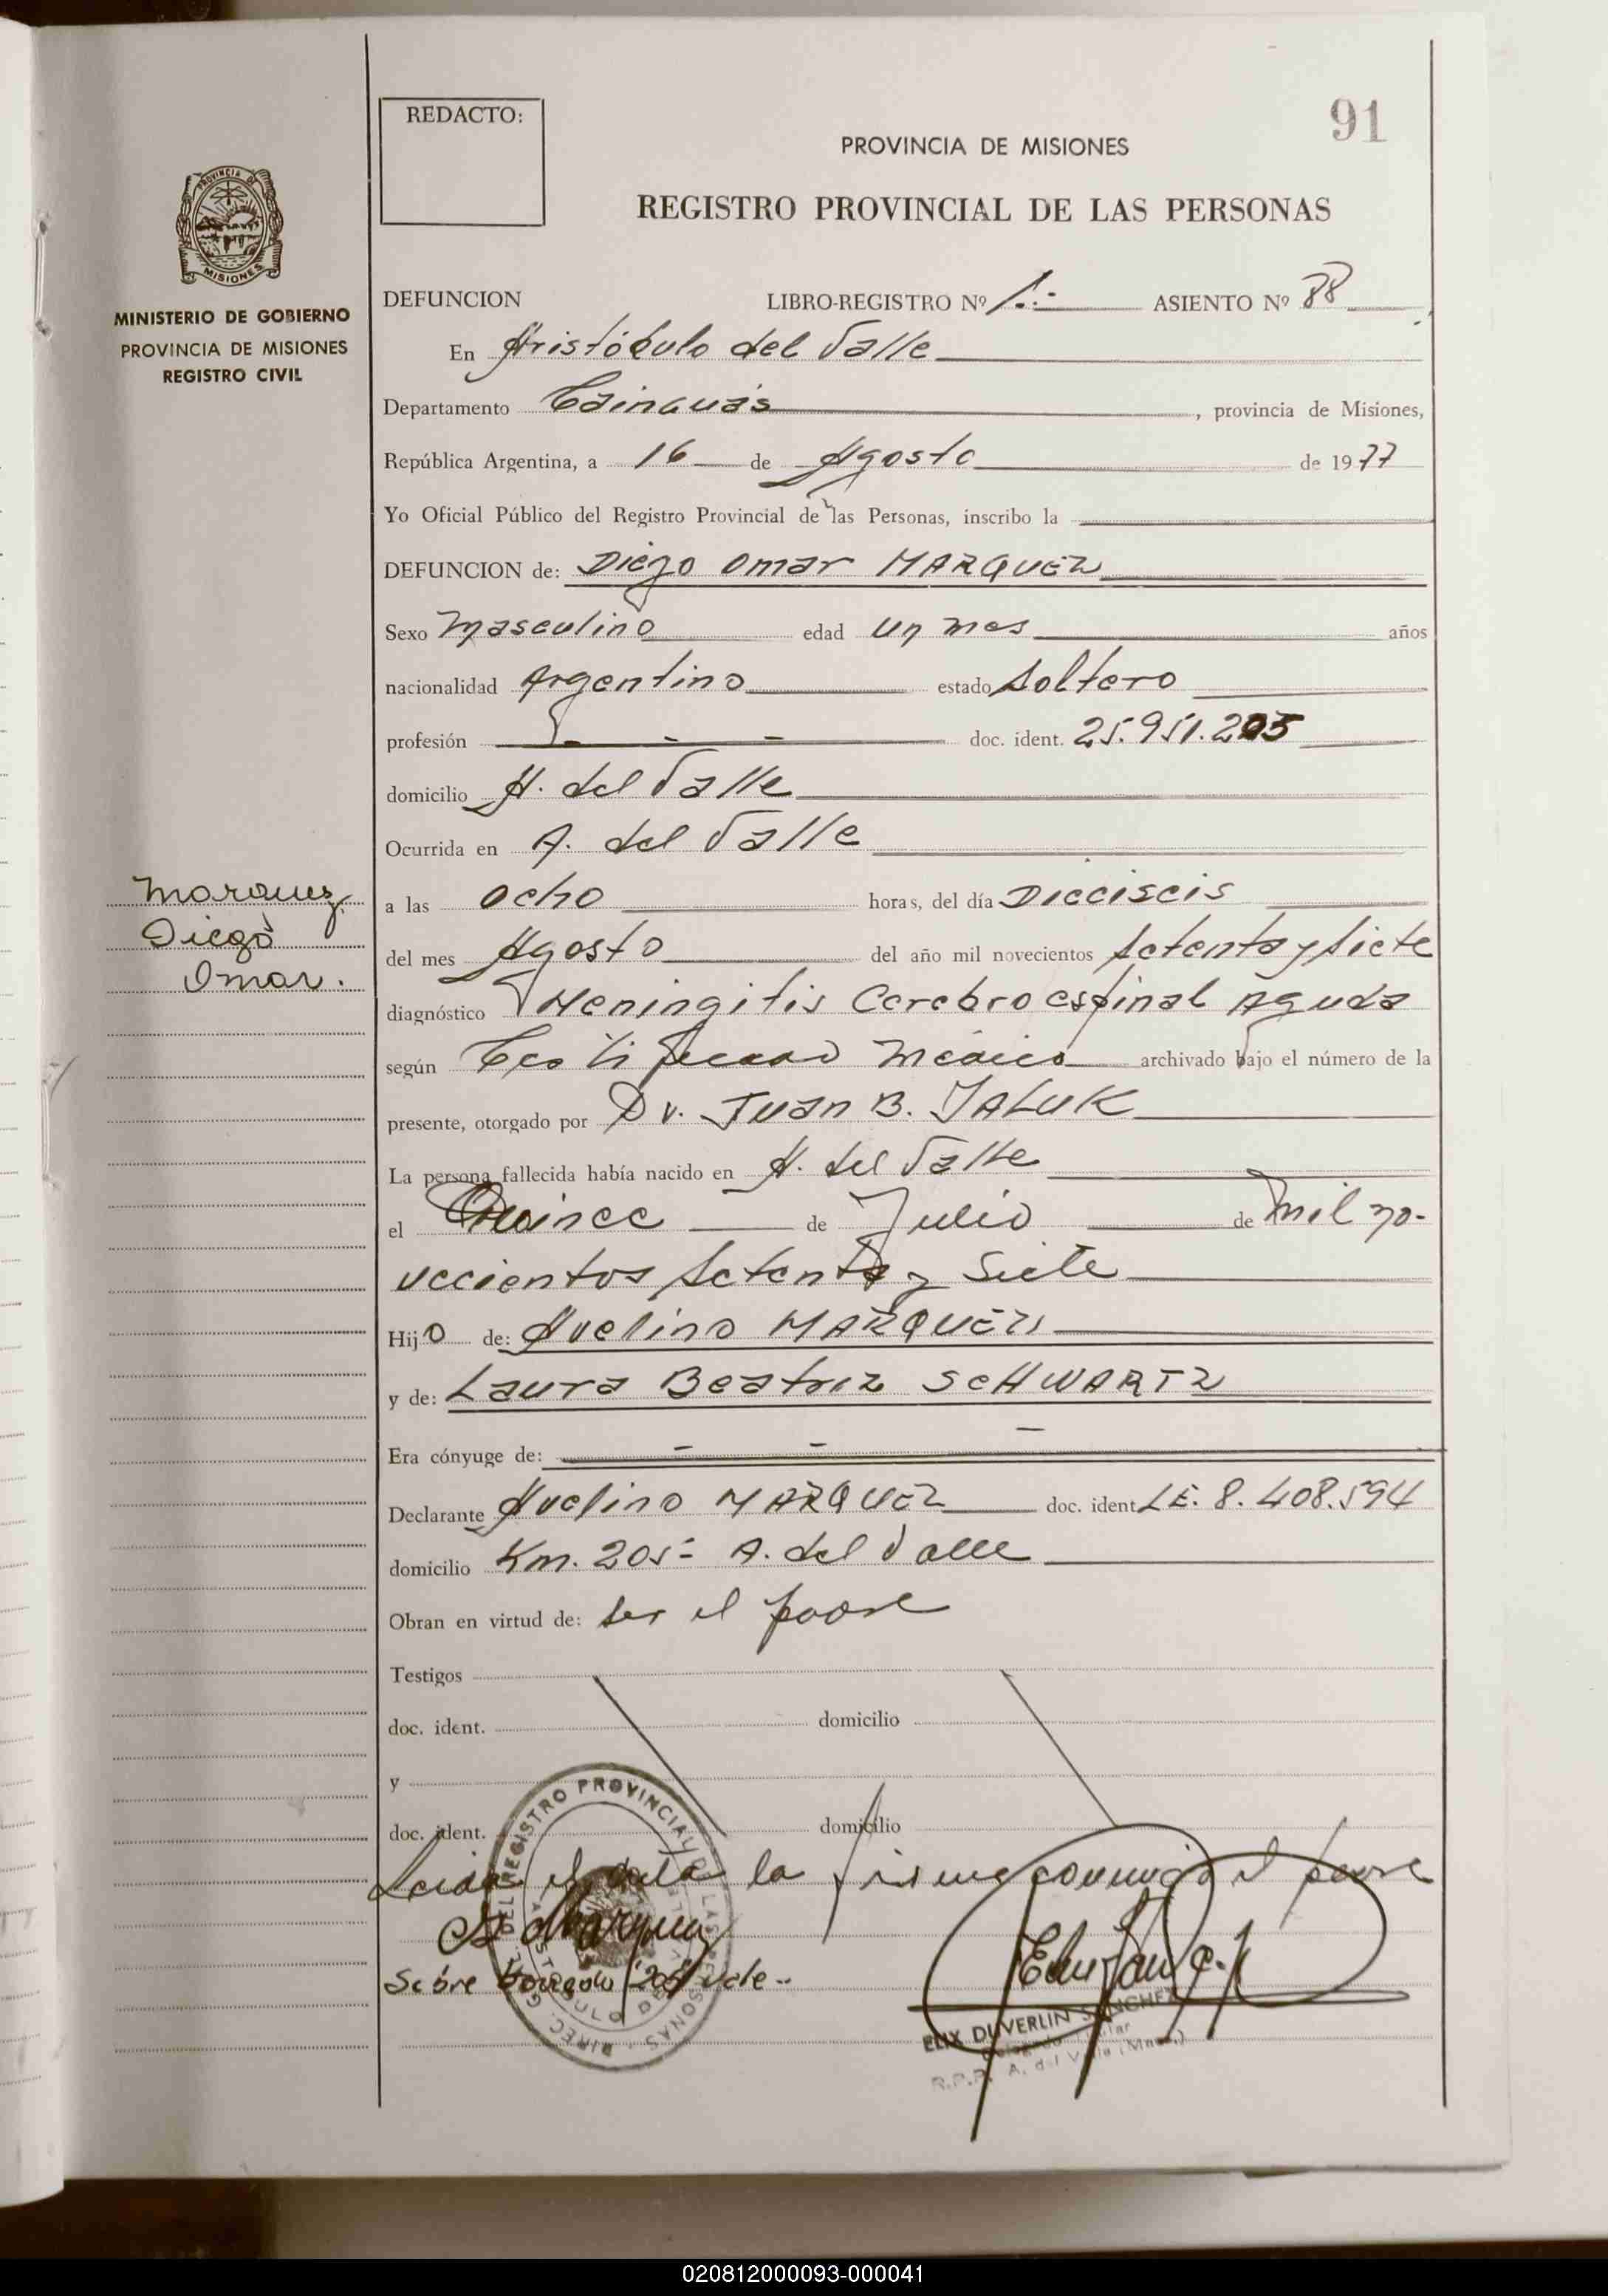 91
REDACTO:
PROVINCIA DE MISIONES
REGISTRO PROVINCIAL DE LAS PERSONAS
PROVINCIA DE
MISIONES
MINISTERIO DE GOBIERNO
PROVINCIA DE MISIONES
REGISTRO CIVIL
DEFUNCION LIBRO-REGISTRO Nº 1.- ASIENTO Nº 88
En Aristóbulo del Valle
Departamento Cainguás, provincia de Misiones,
República Argentina, a 16 de Agosto de 1977
Yo Oficial Público del Registro Provincial de las Personas, inscribo la
DEFUNCION de: Diego Omar MARQUEZ
Sexo Masculino edad un mes años
nacionalidad Argentino estado Soltero
profesión - - - doc. ident. 25.951.205
domicilio A. del Valle
Ocurrida en A. del Valle
a las ocho horas, del día Dieciseis
del mes Agosto del año mil novecientos Setenta y Siete
diagnóstico Meningitis Cerebroespinal Aguda
según Certificado Médico archivado bajo el número de la
presente, otorgado por Dr. Juan B. JALUK
La persona fallecida había nacido en A. del Valle
el Quince de Julio de mil no-
vecientos Setenta y Siete
Hijo de: Avelino MARQUEZ
y de: Laura Beatriz SCHWARTZ
Era cónyuge de: - - -
Declarante Avelino MARQUEZ doc. ident. L.E. 8.408.594
domicilio Km. 205- A. del Valle
Obran en virtud de: ser el padre
Testigos
doc. ident. domicilio
y
doc. ident. domicilio
Leida el acta la firma conmigo el padre
Sobre borrado "205" vale.-
ELIX DUVERLIN SANCHEZ
Delegado Titular
R.P.P. A. del Valle (Mnes.)
Marquez
Diego
Omar.
DIREC. GRAL. DEL REGISTRO PROVINCIAL DE LAS PERSONAS
020812000093-000041